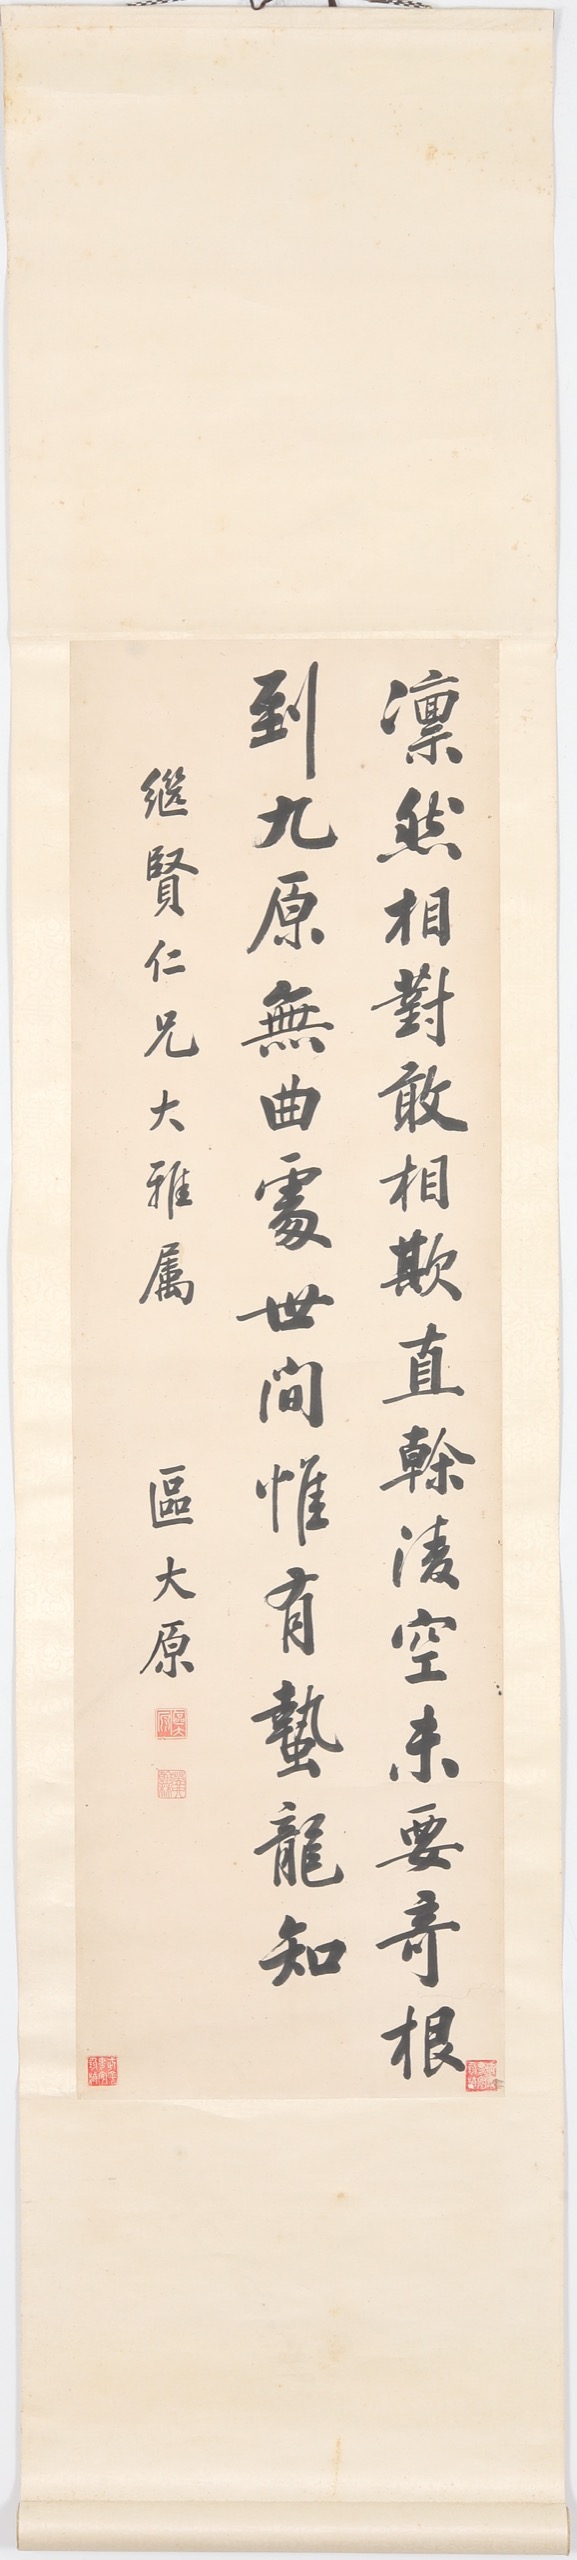 凛然相對敢相欺直榦淩空未要奇根
到九原無曲處世間惟有蟄龍知
繼賢仁兄大雅属 區大原